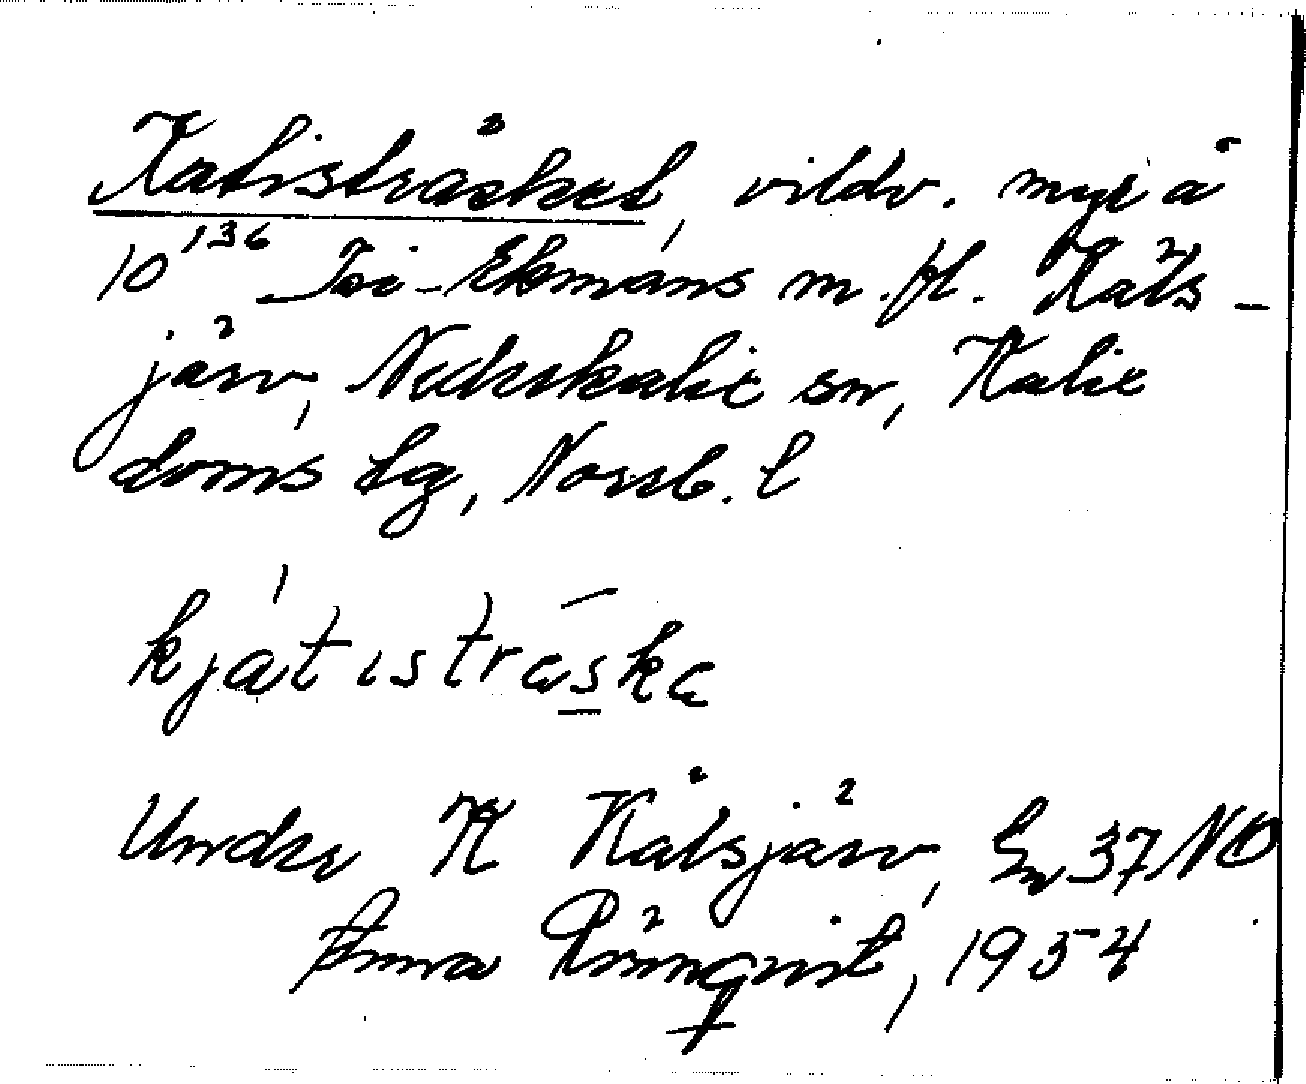 Katisträsket, vildv. myr å
10¹³⁶ Isi-Ekmans m.fl. Räts-
järv, Nederkalix sn, Kalix
doms lg, Norrb. l
kjátistrǣska
Under K Kälsjärv, Gn 37 NO
Anna Rönnqvist, 1954